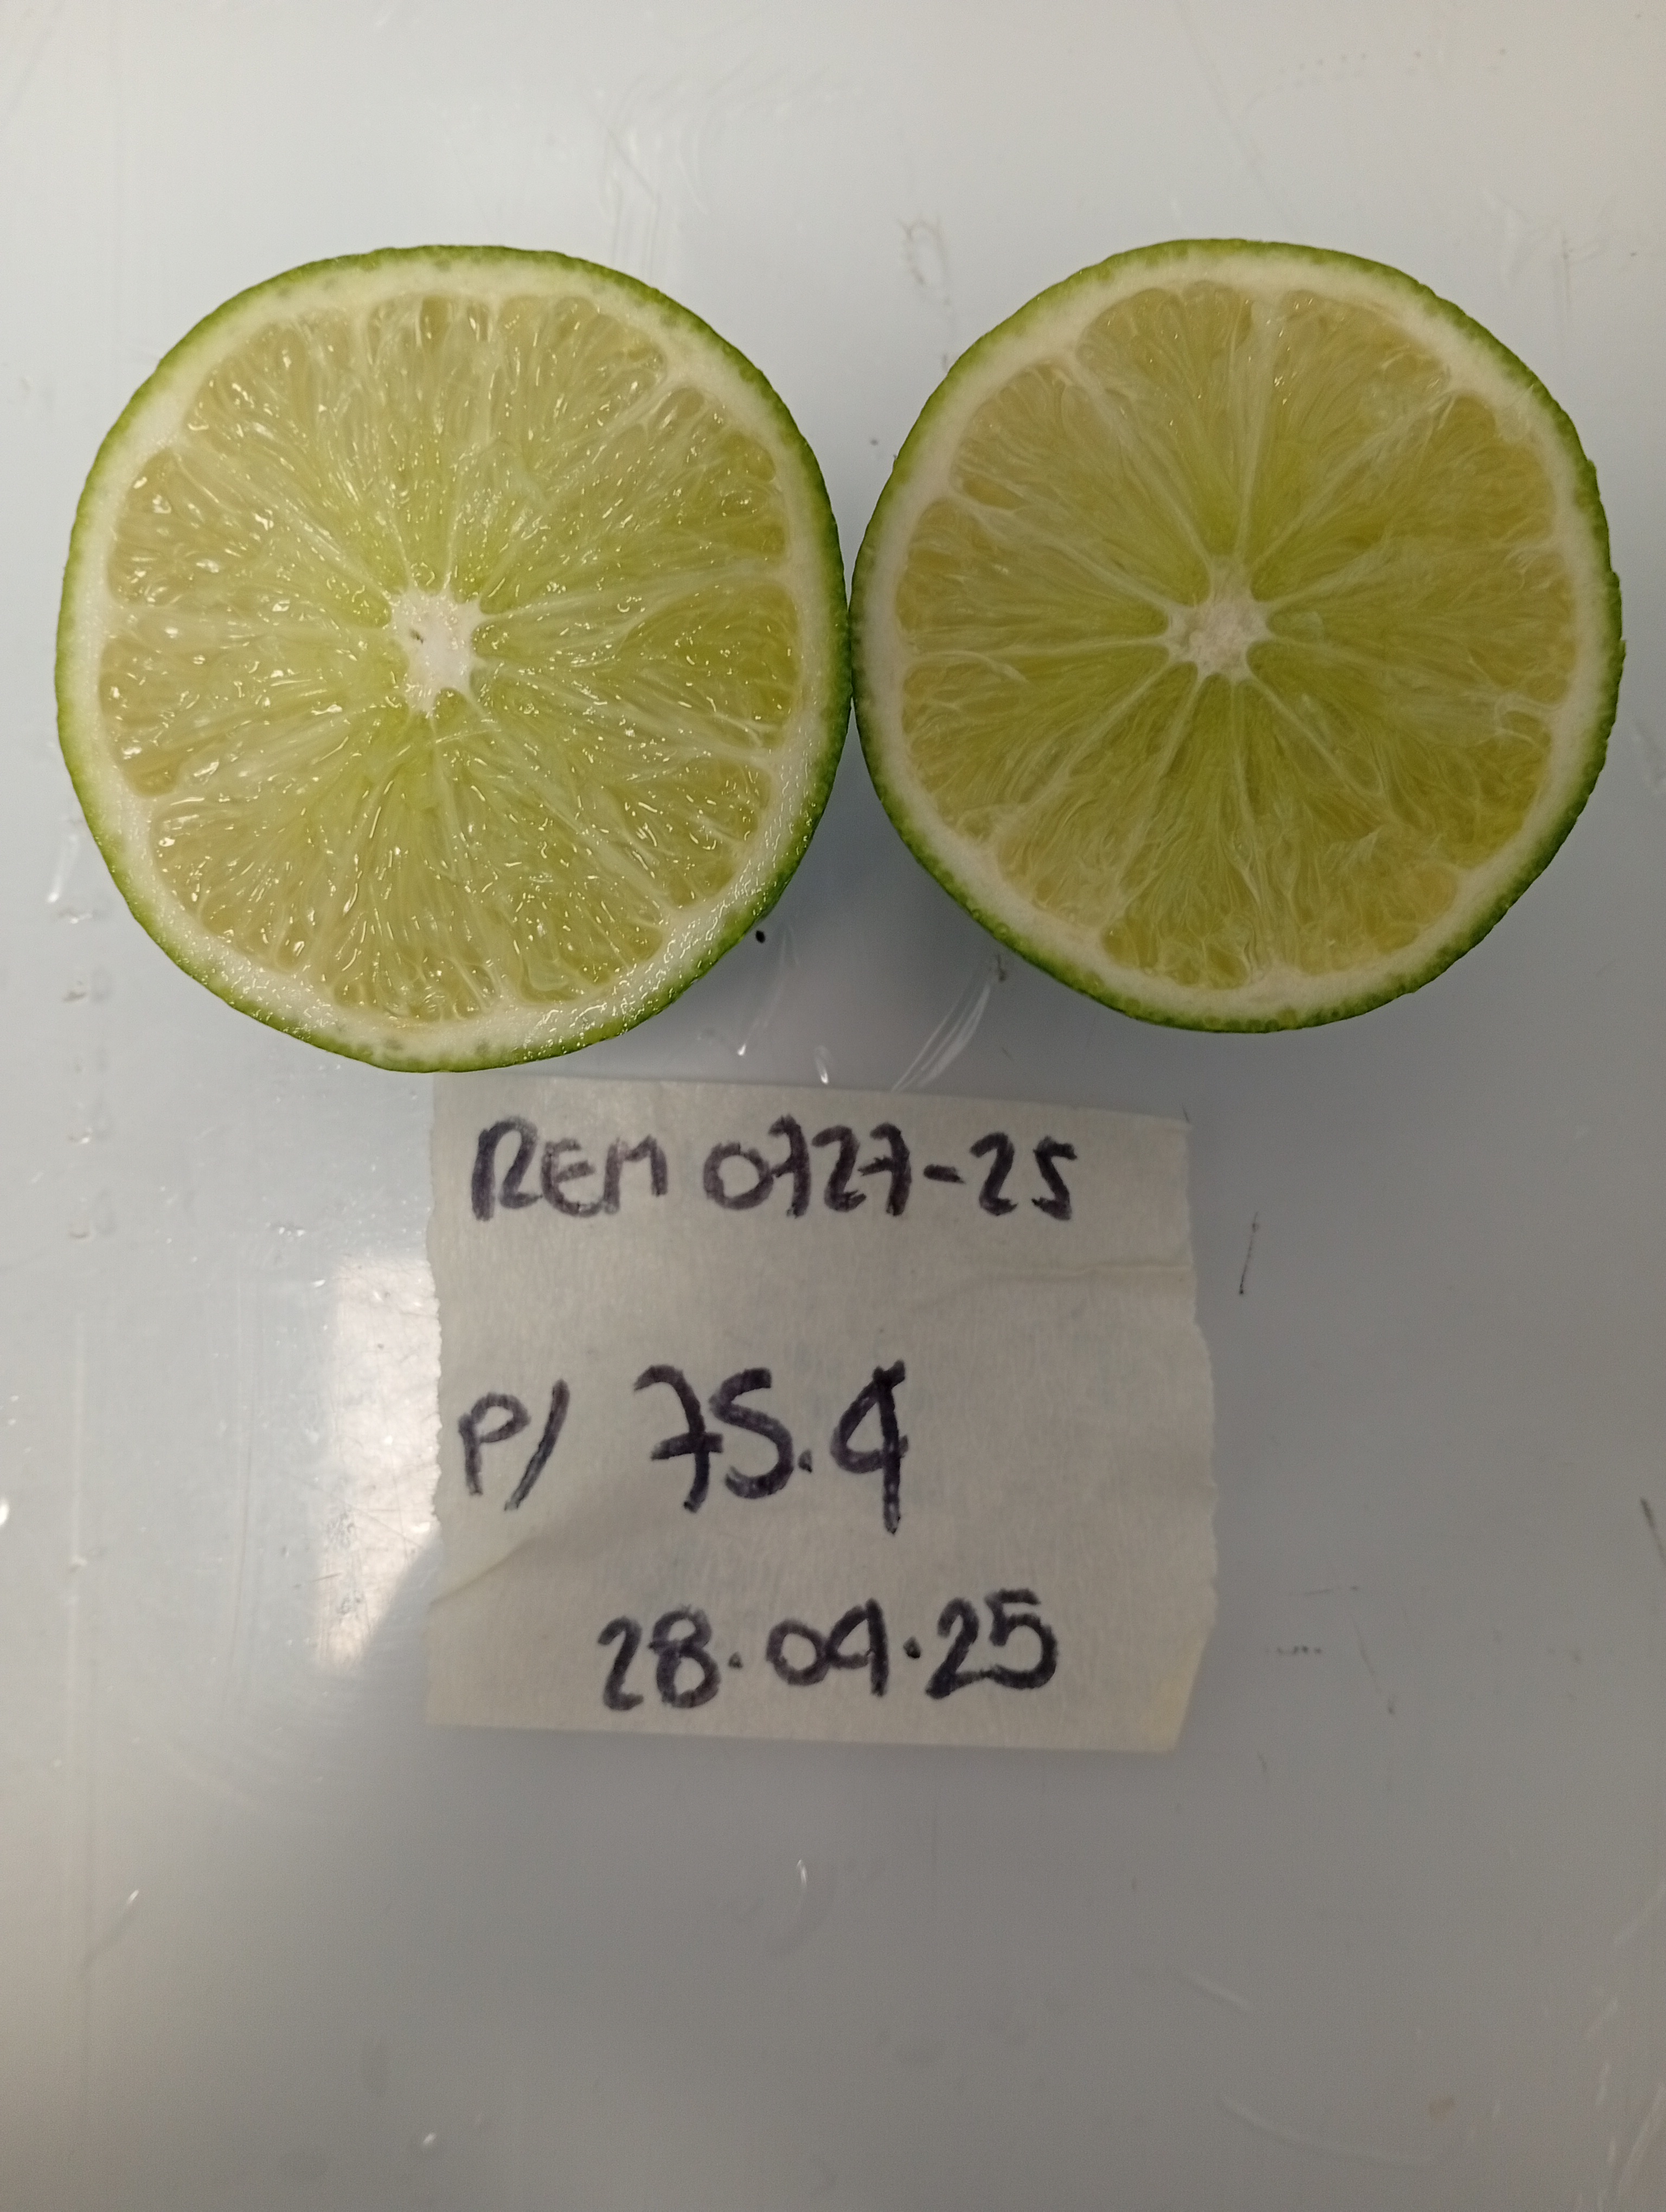 REM 0727-25
P/ 75.4
28.04.25